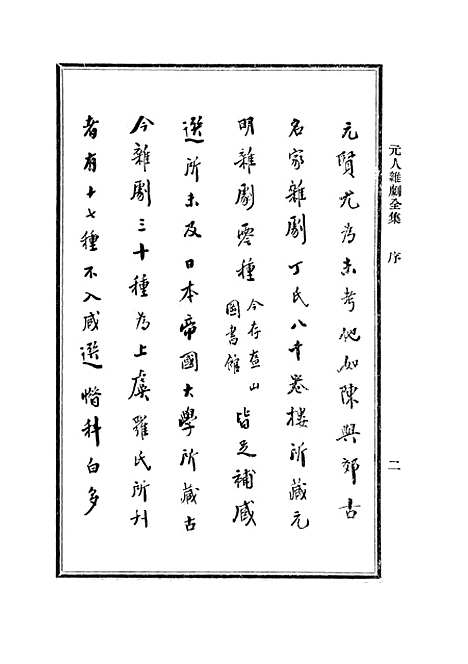 元人雜劇全集　序　二
元賢尤為未考他如陳與郊古
名家雜劇丁氏八千卷樓所藏元
明雜劇零種今存盋山圖書館皆足補臧
選所未及日本帝國大學所藏古
今雜劇三十種為上虞羅氏所刊
者有十七種不入臧選惜科白多